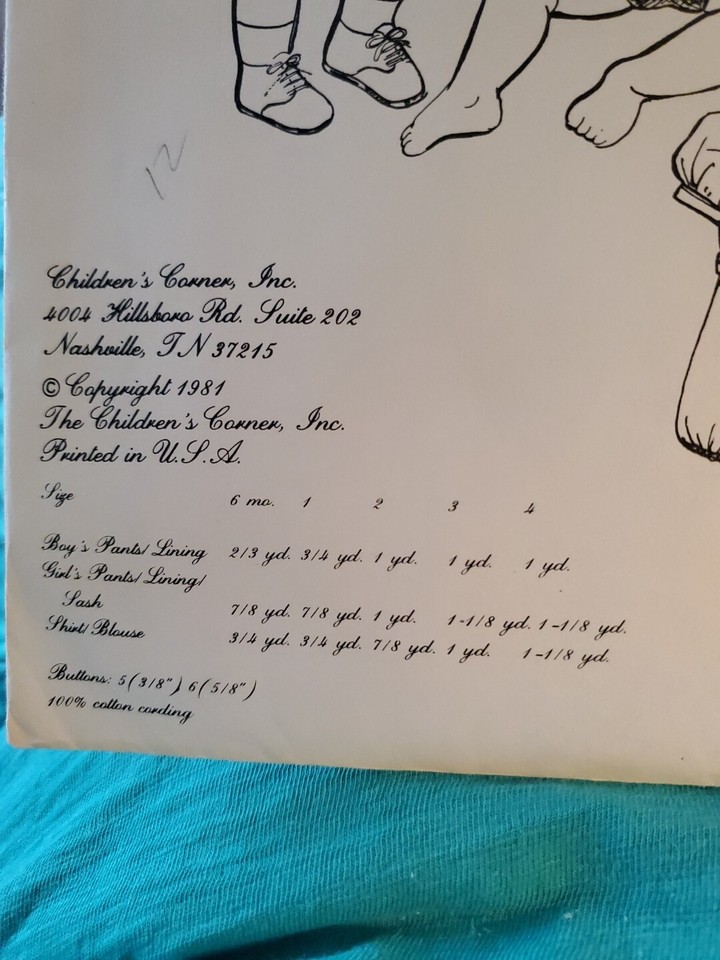 12
Children's Corner, Inc.
4004 Hillsboro Rd. Suite 202
Nashville, TN 37215
© Copyright 1981
The Children's Corner, Inc.
Printed in U.S.A.
Size 6 mo. 1 2 3 4
Boy's Pants/Lining 2/3 yd. 3/4 yd. 1 yd. 1 yd. 1 yd.
Girl's Pants/Lining/
Sash 7/8 yd. 7/8 yd. 1 yd. 1-1/8 yd. 1-1/8 yd.
Shirt/Blouse 3/4 yd. 3/4 yd. 7/8 yd. 1 yd. 1-1/8 yd.
Buttons: 5(3/8") 6(5/8")
100% cotton cording